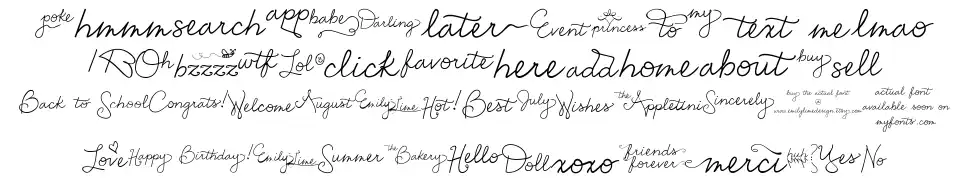 poke hmmm search app babe Darling later Event princess to my text me lmao
Oh bzzzz wtf Lol click favorite here add home about buy sell
Back to School Congrats! Welcome August Emily Lime Hot! Best July Wishes the Appletini Sincerely buy the actual font @ www.emilylimedesign.etsy.com actual font available soon on myfonts.com
Love Happy Birthday! Emily Lime Summer the Bakery Hello Doll xoxo friends forever merci Yes No